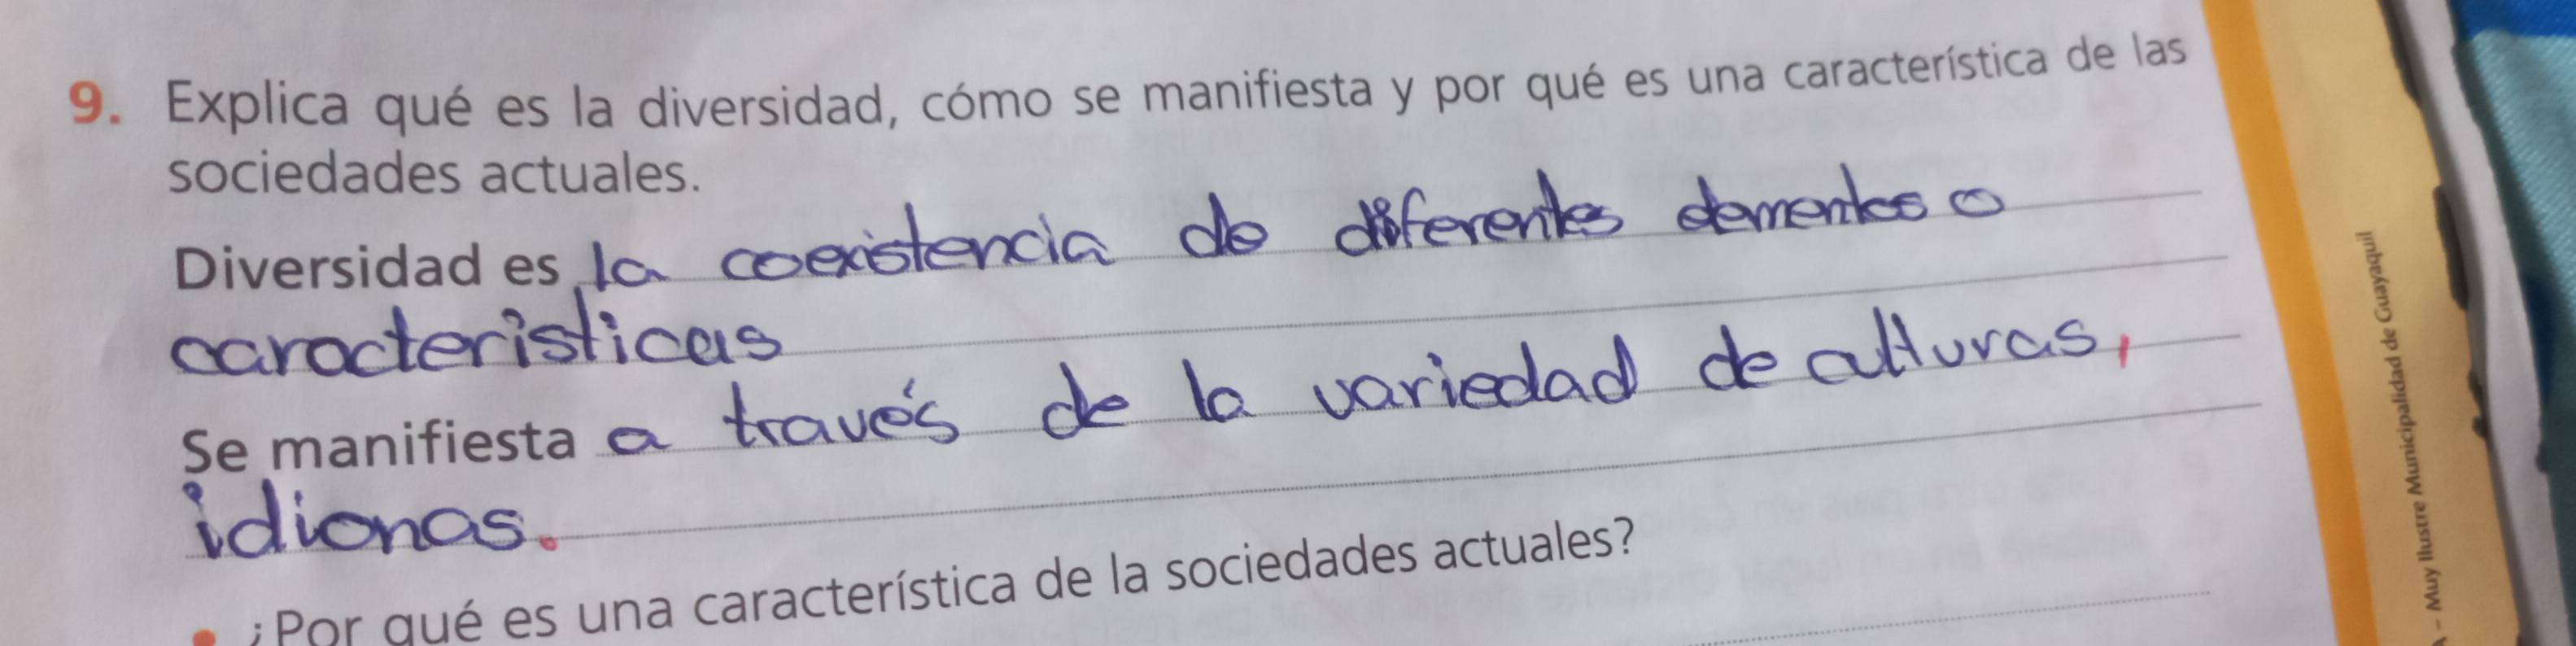 9. Explica qué es la diversidad, cómo se manifiesta y por qué es una característica de las
sociedades actuales.
Diversidad es la coexistencia de diferentes elementos o
caracteristicas
Se manifiesta a través de la variedad de culturas,
idionas.
• ¿Por qué es una característica de la sociedades actuales?
A – Muy Ilustre Municipalidad de Guayaquil